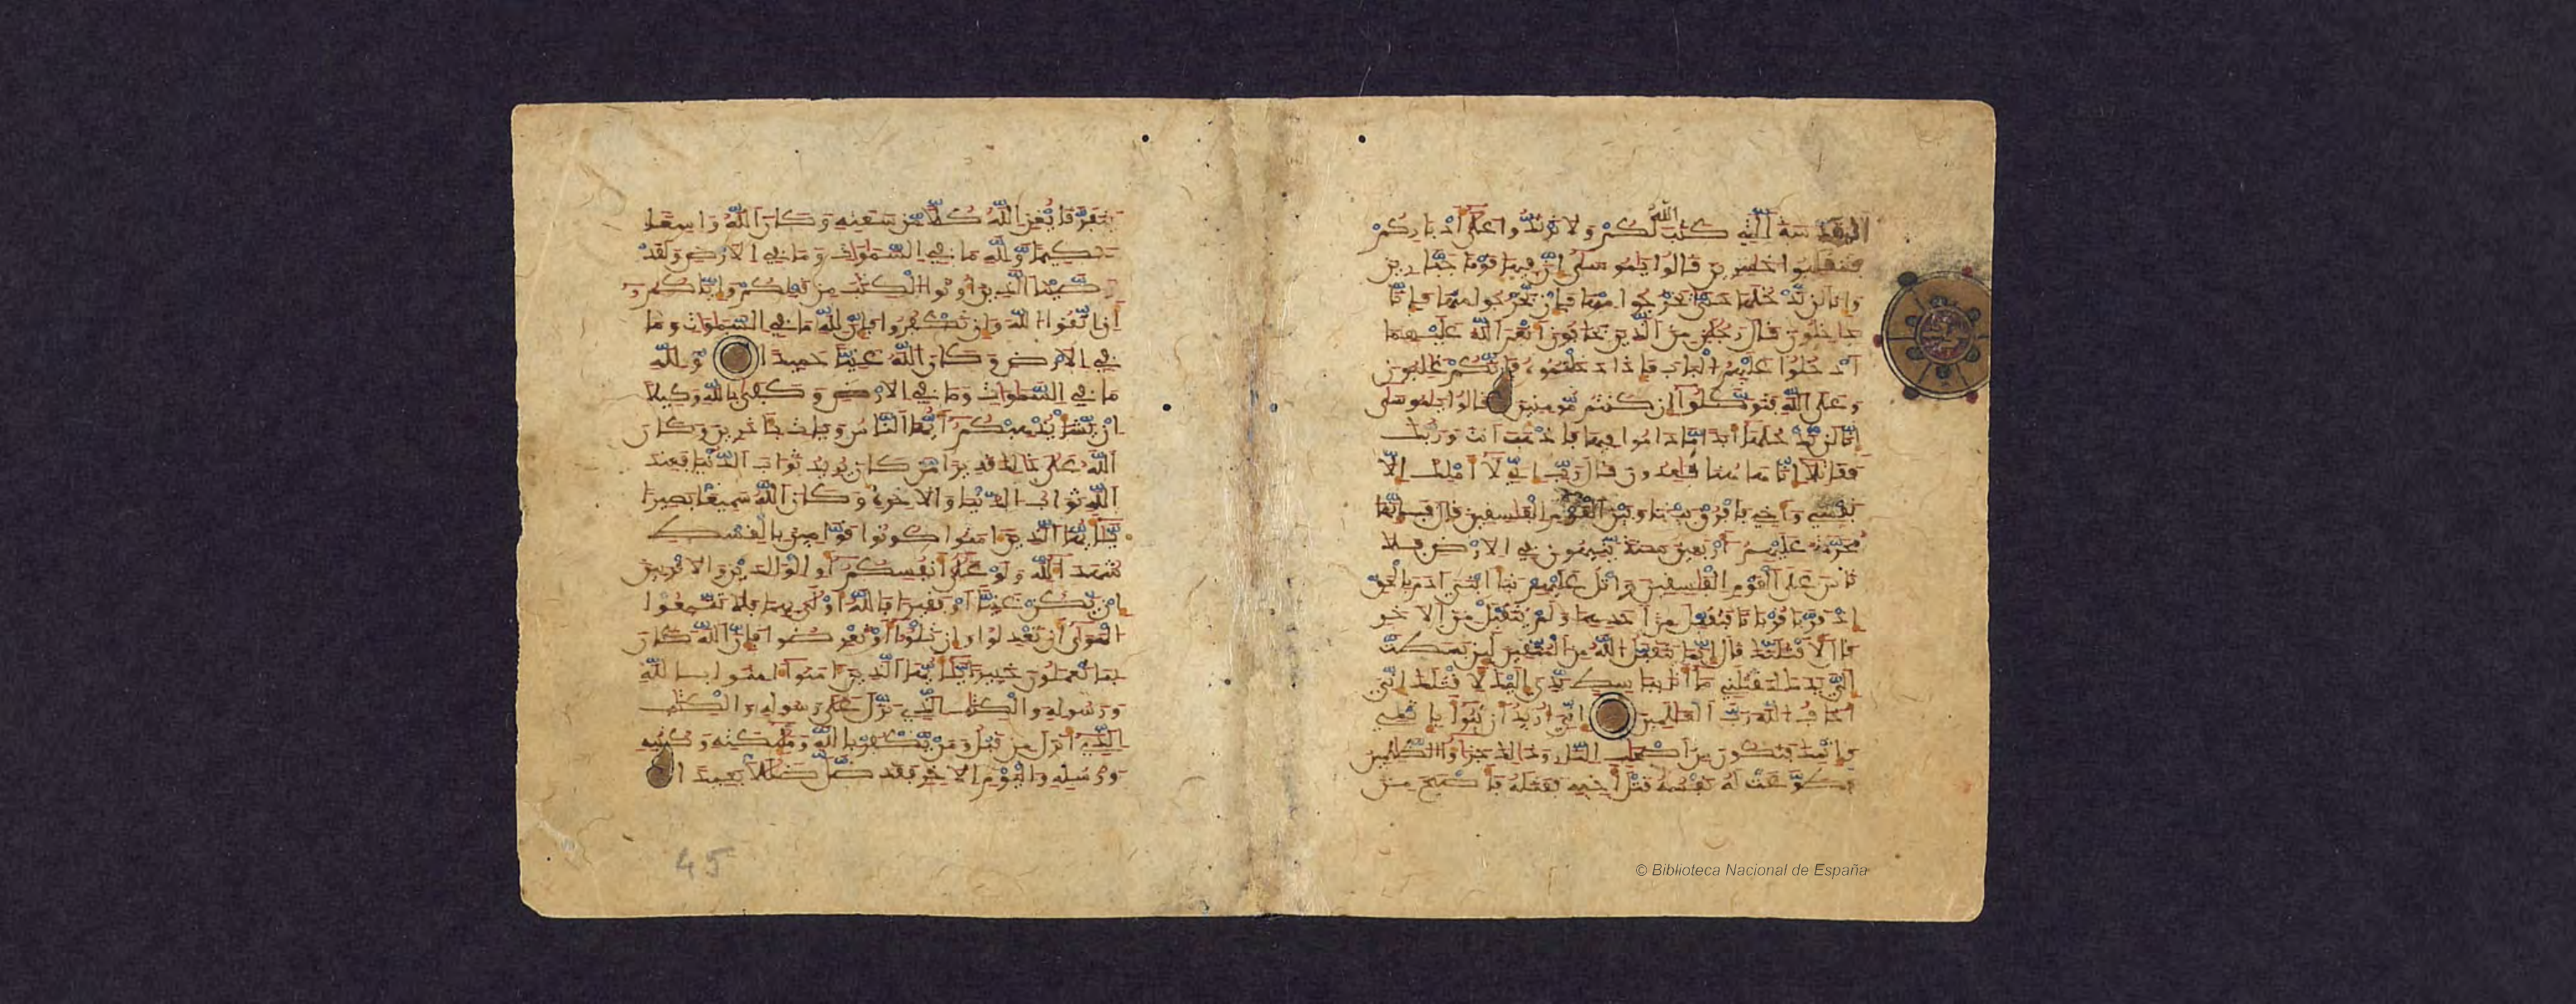 المقدسة التي كتب الله لكم ولا ترتدوا على أدباركم
فتنقلبوا خسرين قالوا يموسى إن فيها قوما جبارين
وإنا لن ندخلها حتى يخرجوا منها فإن يخرجوا منها فإنا
داخلون قال رجلن من الذين يخافون أنعم الله عليهما
ادخلوا عليهم الباب فإذا دخلتموه فإنكم غلبون
وعلى الله فتوكلوا إن كنتم مومنين قالوا يموسى
إنا لن ندخلها أبدا ما داموا فيها فاذهب أنت وربك
فقاتلا إنا هاهنا قاعدون قال رب إني لا أملك إلا
نفسي وأخي فافرق بيننا وبين القوم الفسقين قال فإنها
محرمة عليهم أربعين سنة يتيهون في الأرض فلا
تاس على القوم الفسقين واتل عليهم نبأ ابني آدم بالحق
إذ قربا قربانا فتقبل من أحدهما ولم يتقبل من الآخر
قال لأقتلنك قال إنما يتقبل الله من المتقين لئن بسطت
إلي يدك لتقتلني ما أنا بباسط يدي إليك لأقتلك إني
أخاف الله رب العلمين إني أريد أن تبوأ بإثمي
وإثمك فتكون من أصحب النار وذلك جزاؤا الظلمين
فطوعت له نفسه قتل أخيه فقتله فأصبح من
يتفرقا يغن الله كلا من سعته وكان الله واسعا
حكيما ولله ما في السموات وما في الأرض ولقد
وصينا الذين أوتوا الكتب من قبلكم وإياكم و
أن اتقوا الله وإن تكفروا فإن لله ما في السموات وما
في الأرض وكان الله غنيا حميدا ولله
ما في السموات وما في الأرض وكفى بالله وكيلا
إن يشأ يذهبكم أيها الناس ويات بآخرين وكان
الله على ذلك قديرا من كان يريد ثواب الدنيا فعند
الله ثواب الدنيا والآخرة وكان الله سميعا بصيرا
يأيها الذين آمنوا كونوا قوامين بالقسط
شهداء لله ولو على أنفسكم أو الوالدين والأقربين
إن يكن غنيا أو فقيرا فالله أولى بهما فلا تتبعوا
الهوى أن تعدلوا وإن تلوا أو تعرضوا فإن الله كان
بما تعملون خبيرا يأيها الذين آمنوا آمنوا بالله
ورسوله والكتب الذي نزل على رسوله والكتب
الذي أنزل من قبل ومن يكفر بالله وملئكته وكتبه
ورسله واليوم الآخر فقد ضل ضللا بعيدا
45
© Biblioteca Nacional de España